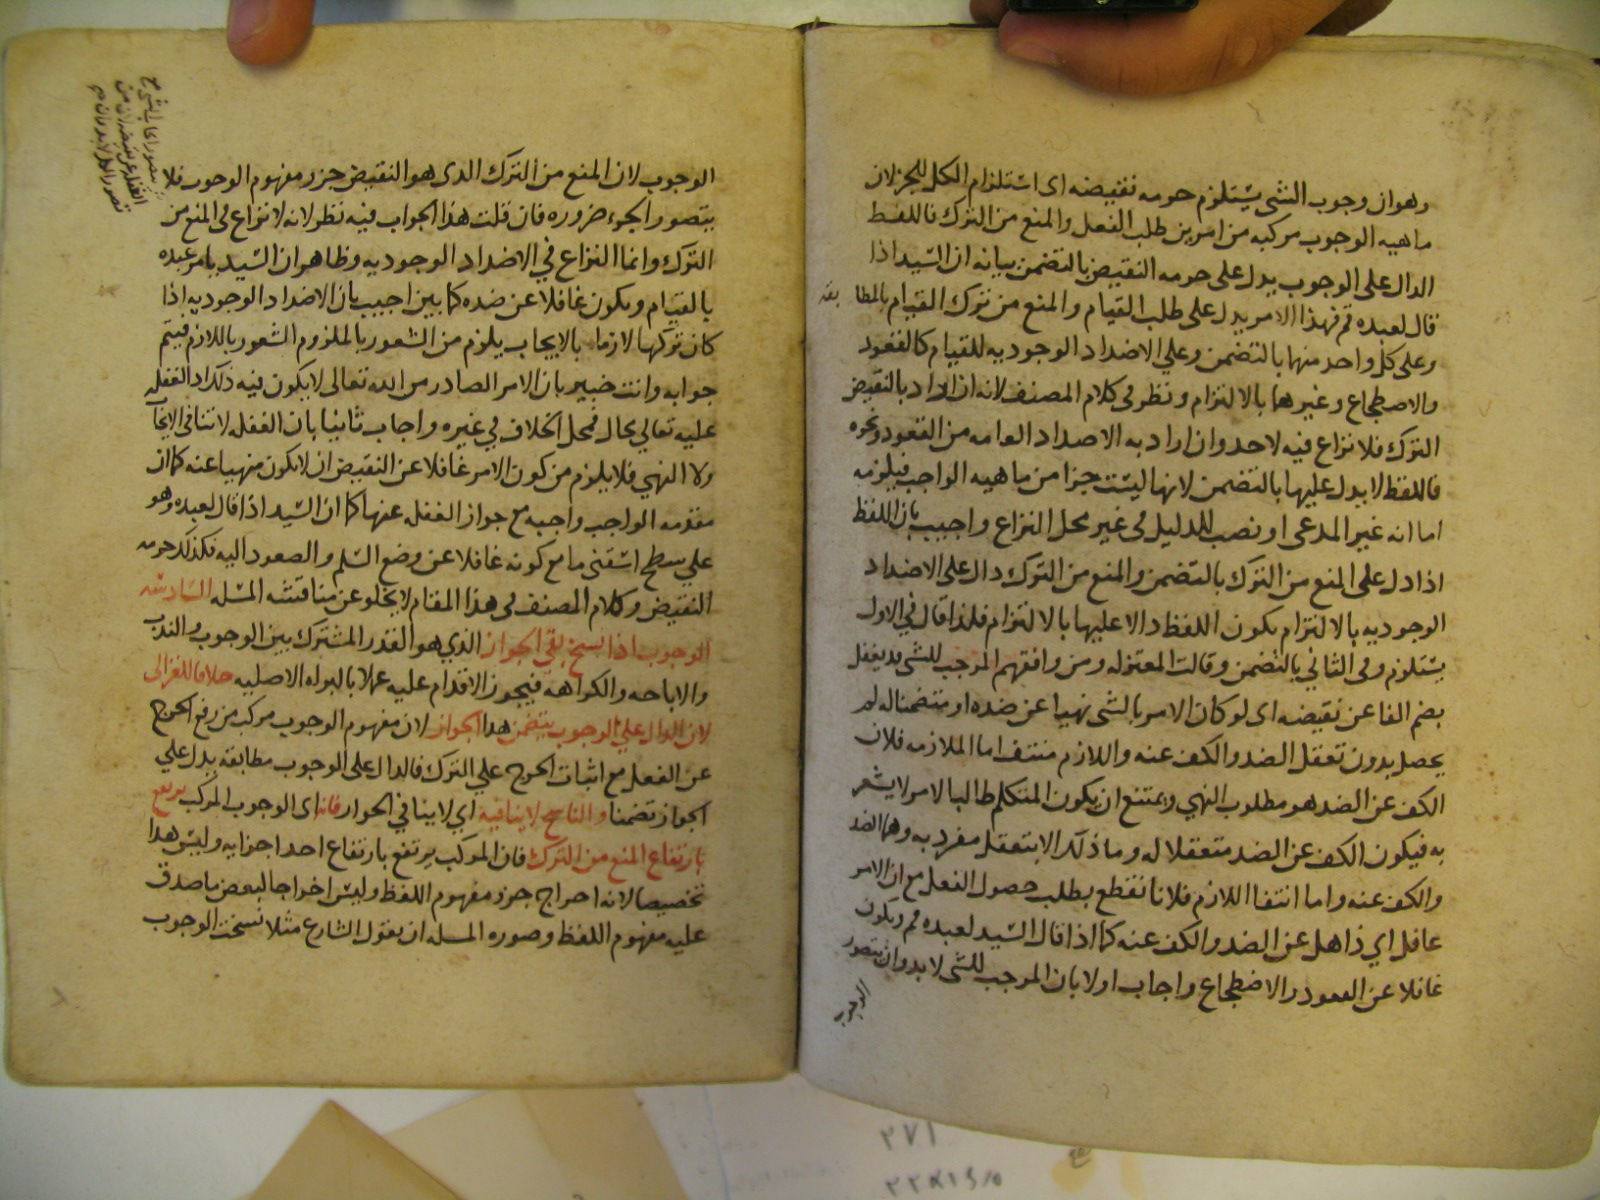 وهو ان وجوب الشي يستلزم حرمه نقيضه اى استلزام الكل للجزلان
ماهيه الوجوب مركبه من امرين طلب الفعل والمنع من الترك فاللفظ
الدال على الوجوب يدل على حرمه النقيض بالتضمن بيانه ان السيد اذا
قال لعبده قم فهذا الامر يدل على طلب القيام والمنع من ترك القيام بالمطا بقه
وعلى كل واحد منها بالتضمن وعلي الاضداد الوجوديه للقيام كالقعود
والاضطجاع وغيرها بالالتزام ونظر في كلام المصنف لانه ان اراد بالنقيض
الترك فلا نزاع فيه لاحد وان اراد به الاضداد العامه من القعود ونحوه
فاللفظ لا يدل عليها بالتضمن لانها ليست جزا من ماهيه الواجب فيلزمه
اما انه غير المدعى او نصب للدليل في غير محل النزاع واجيب بان اللفظ
اذا دل على المنع من الترك بالتضمن والمنع من الترك دال على الاضداد
الوجوديه بالالتزام يكون اللفظ دالا عليها بالالتزام فلذا قال في الاول
يستلزم وفي الثاني بالتضمن وقالت المعتزله ومن وافقهم الموجب للشي قد يغفل
بضم الفا عن نقيضه اى لو كان الامر بالشي نهيا عن ضده او متضمنا له لم
يحصل بدون تعقل الضد والكف عنه واللازم منتف اما الملازمه فلان
الكف عن الضد هو مطلوب النهي ويمتنع ان يكون المتكلم طالبا لامر لا يشعر
به فيكون الكف عن الضد متعقلا له وما ذلك الا بتعقل مفرديه وهما الضد
والكف عنه واما انتفا اللازم فلانا نقطع بطلب حصول الفعل مع ان الامر
غافل اي ذاهل عن الضد والكف عنه كما اذا قال السيد لعبده قم ويكون
غافلا عن القعود والاضطجاع واجاب اولا بان الموجب للشي لا بد وان يتصور
الوجوب
الوجوب لان المنع من الترك الذي هو النقيض جزء مفهوم الوجوب فلا
يتصور الجوء ضروره فان قلت هذا الجواب فيه نظر لانه لا نزاع في المنع من
الترك وانما النزاع في الاضداد الوجوديه وظاهر ان السيد يامر عبده
بالقيام ويكون غافلا عن ضده كما بين اجيب بان الاضداد الوجوديه اذا
كان تركها لازما بالايجاب يلزم من الشعور بالملزوم الشعور باللازم فيتم
جوابه وانت خبير بان الامر الصادر من الله تعالى لا يكون فيه ذلك اذ الغفله
عليه تعالي محال فمحل الخلاف في غيره واجاب ثانيا بان الغفله لا تنافى الايجا
ولا النهي فلا يلزم من كون الامر غافلا عن النقيض ان لا يكون منهيا عنه كما ان
مقدمه الواجب واجبه مع جواز الغفله عنها كما ان السيد اذا قال لعبده وهو
علي سطح اسقني ما مع كونه غافلا عن وضع السلم والصعود اليه فكذلك حرمه
النقيض وكلام المصنف في هذا المقام لا يخلو عن مناقشه المسله السادسه
الوجوب اذا نسخ بقي الجواز الذي هو القدر المشترك بين الوجوب والندب
والاباحه والكراهه فيجوز الاقدام عليه عملا بالبراه الاصليه خلافا للغزالى
لان الدال علي الوجوب يتضمن هذا الجواز لان مفهوم الوجوب مركب من رفع الحرج
عن الفعل مع اثبات الحرج علي الترك فالدال على الوجوب مطابقه يدل علي
الجواز تضمنا والناسخ لا ينافيه اي لا ينافي الجواز فانه اى الوجوب المركب يرتفع
بارتفاع المنع من الترك فان المركب يرتفع بارتفاع احد اجزايه وليس هذا
تخصيصا لانه اخراج جزء مفهوم اللفظ وليس اخراجا لبعض ما صدق
عليه مفهوم اللفظ وصوره المسله ان يقول الشارع مثلا نسخت الوجوب
٢٧١